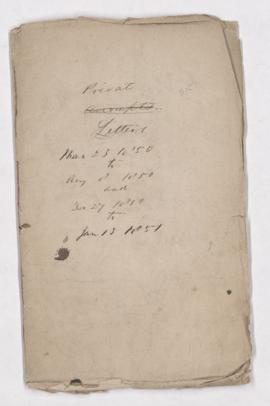 Private
accounts
Letters
Mar 23 1850
to
Aug 8 1850
and
Dec 27 1850
to
Jan 13 1851